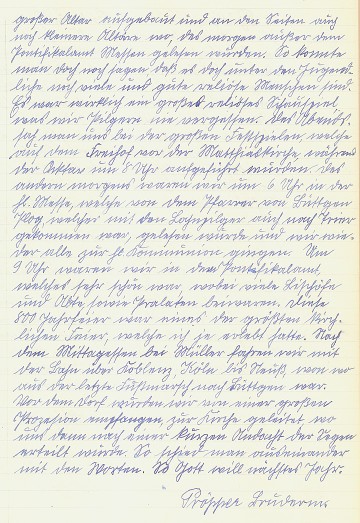 großer Altar aufgebaut und an den Seiten auch
noch kleinere Altäre wo, des morgens außer dem
Pontifikalamt Messen gelesen wurden. So konnte
man doch noch sagen daß es doch unter den Jugend-
liche noch viele und gute religiöse Menschen sind.
Es war wirklich ein großes religiöses Schauspiel
was wir Pilgern nie vergessen. Des Abends
sah man uns bei der großen Festspielen, welche
auf dem Freihof vor der Matthiaskirche, während
der Oktav um 8 Uhr aufgeführt wurden. Des
andern morgens waren wir um 6 Uhr in der
hl. Messe, welche von dem Pfarrer von Büttgen
welcher mit den Fußpilger auch nach Trier
gekommen war, gelesen wurde und wir wie-
der alle zur hl. Kommunion gingen. Um
9 Uhr waren wir in dem Pontifikalamt
welches sehr schön war, wobei viele Bischöfe
und Äbte sowie Prälaten beiwaren. Diese
800 Jahrfeier war eines der größten kirch-
lichen Feier, welche ich je erlebt hatte. Nach
dem Mittagessen bei Müller fuhren wir mit
der Bahn über Koblenz, Köln bis Neuß, von wo
aus der letzte Fußmarsch nach Büttgen war.
Vor dem Dorf wurden wir von einer großen
Prozession empfangen, zur Kirche geleitet wo
uns dann nach einer kurzen Andacht der Segen
erteilt wurde. So schied man auseinander
mit den Worten. So Gott will nächstes Jahr.
Pröpper Bruderm.